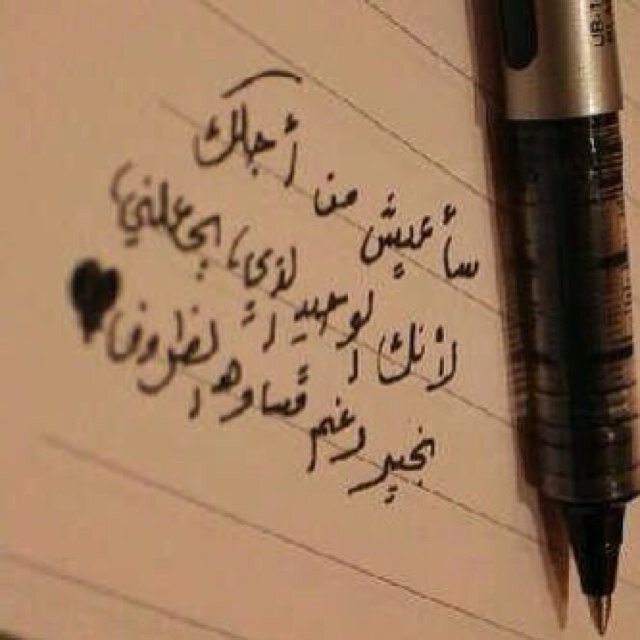 سأعيش من أجلك
لأنك الوحيد الذي يجعلني
بخير رغم قساوه الظروف